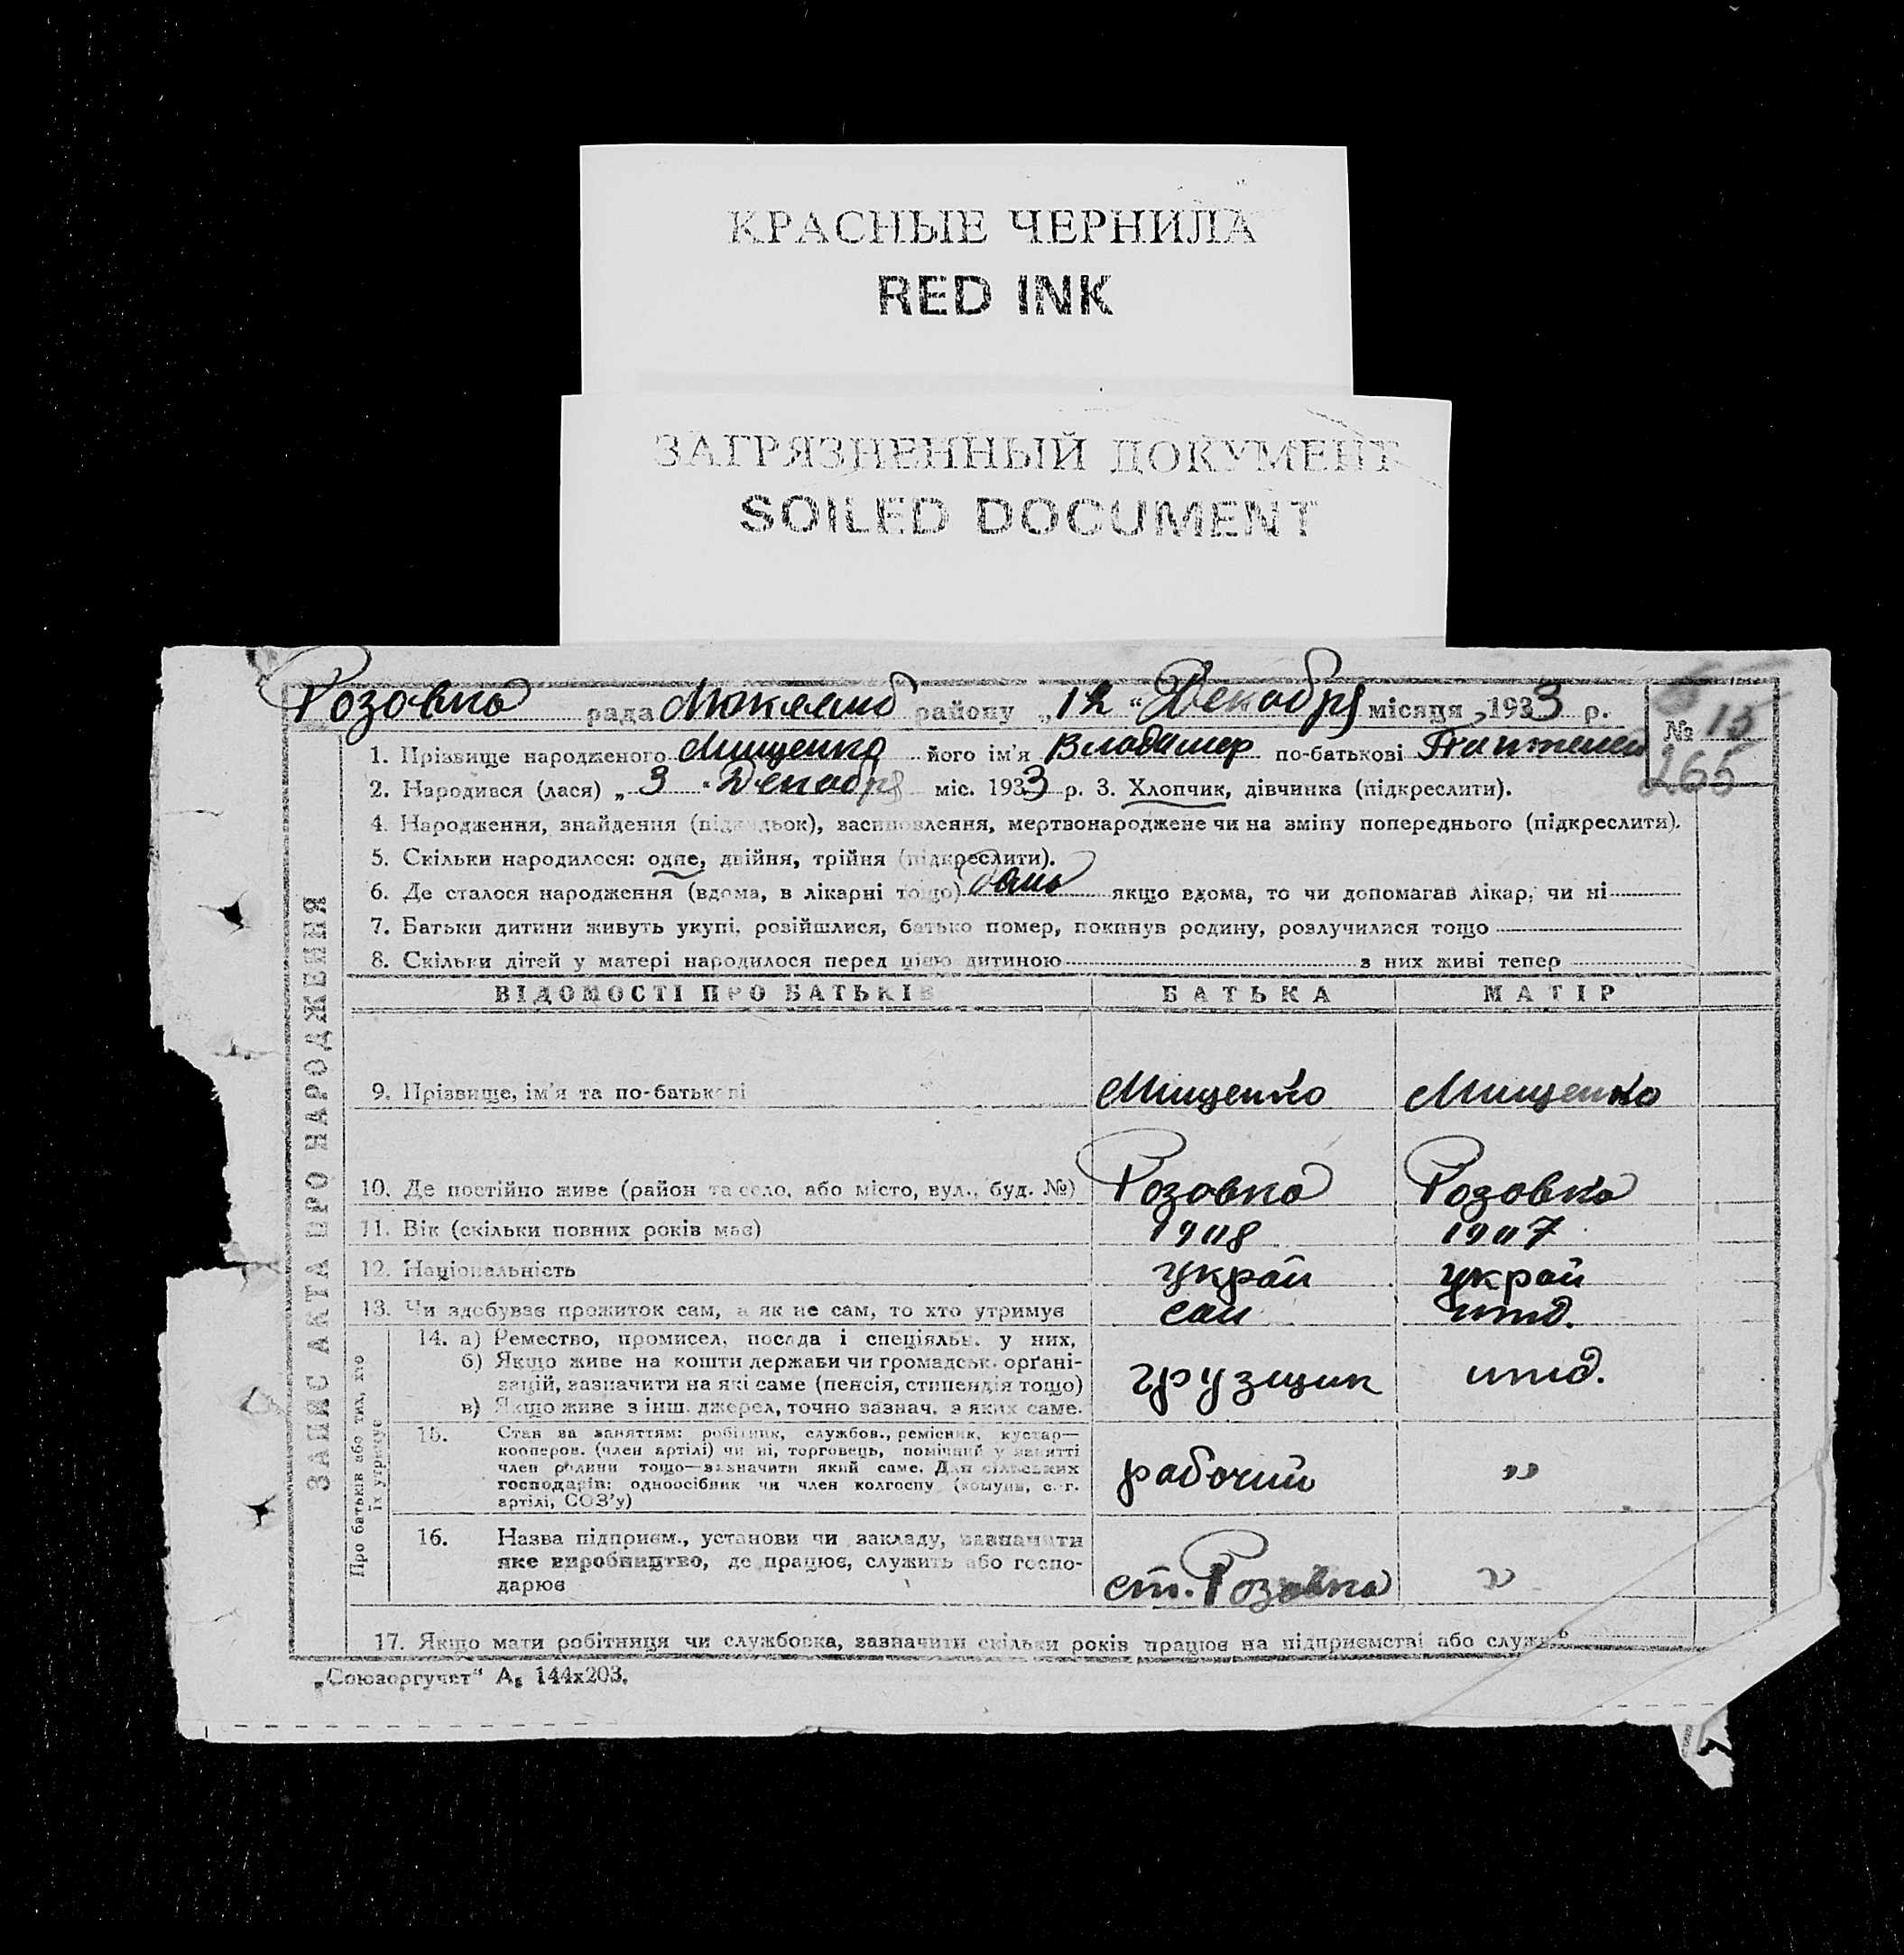 КРАСНЫЕ ЧЕРНИЛА
RED INK
ЗАГРЯЗНЕННЫЙ ДОКУМЕНТ
SOILED DOCUMENT
Розовка рада району „12“ Декабря місяця 1933 р.
№ 15
265
1. Прізвище народженого Мищенко його ім'я Владимер по-батькові
2. Народився (лася) „3“ Декабря міс. 1933 р. 3. Хлопчик, дівчинка (підкреслити).
4. Народження, знайдення (підкидьок), засиновлення, мертвонароджене чи на зміну попереднього (підкреслити).
5. Скільки народилося: одне, двійня, трійня (підкреслити).
6. Де сталося народження (вдома, в лікарні тощо) якщо вдома, то чи допомагав лікар, чи ні
7. Батьки дитини живуть укупі, розійшлися, батько помер, покинув родину, розлучилися тощо
8. Скільки дітей у матері народилося перед цією дитиною з них живі тепер
ЗАПИС АКТА ПРО НАРОДЖЕННЯ
ВІДОМОСТІ ПРО БАТЬКІВ БАТЬКА МАТІР
9. Прізвище, ім'я та по-батькові Мищенко Мищенко
10. Де постійно живе (район та село, або місто, вул., буд. №) Розовка Розовка
11. Вік (скільки повних років має) 1908 1907
12. Національність украй украй
13. Чи здобуває прожиток сам, а як не сам, то хто утримує сам ижд.
Про батьків або тих, хто
їх утримує
14. а) Ремество, промисел, посада і спеціяльн. у них,
б) Якщо живе на кошти держави чи громадськ. орґані-
зацій, зазначити на які саме (пенсія, стипендія тощо) грузщик ижд.
в) Якщо живе з інш. джерел, точно зазнач. з яких саме.
15. Стан за заняттям: робітник, службов., ремісник, кустар—
кооперов. (член артілі) чи ні, торговець, помічний у занятті
член родини тощо—зазначити який саме. Для сільських рабочий "
господарів: одноосібник чи член колгоспу (комуни, с.-г.
артілі, СОЗ'у)
16. Назва підприєм., установи чи закладу, зазначити
яке виробництво, де працює, служить або госпо-
дарює ст. Розовка "
17. Якщо мати робітниця чи службовка, зазначити скільки років працює на підприємстві або служить
„Союзоргучет“ А5 144х203.